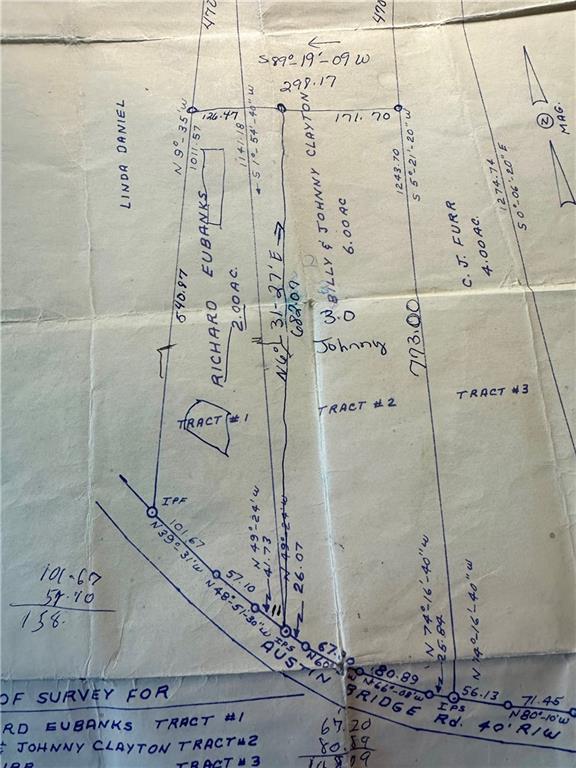 470
470
S 89°-19'-09 W
298.17
126.47
171.70
LINDA DANIEL
N 9°-35'W
1011.57
1141.18
S 1°-54'-40" W
RICHARD EUBANKS
2.00 AC.
540.97
N 6°-31-27' E
682.07
BILLY & JOHNNY CLAYTON
6.00 AC
3.0
Johnny
1243.70
S 5°-21'-20" W
773.00
C. J. FURR
4.00 AC.
1274.74
S 0°-06'-20" E
2
MAG.
TRACT #1
TRACT #2
TRACT #3
IPF
101.67
N 39°-31'W
57.10
N 48°-51'-30"W
N 49°-24'W
41.73
N 49°-24'W
26.07
IPS
N 60°
67.
80.89
N 66°-08'W
N 74°-16'-40" W
25.84
N 74°-16'-40" W
IPS
56.13
71.45
N 80°-10'W
AUSTIN BRIDGE Rd. 40' R/W
101.67
57.10
158.
OF SURVEY FOR
RD EUBANKS TRACT #1
& JOHNNY CLAYTON TRACT #2
URR TRACT #3
67.20
80.89